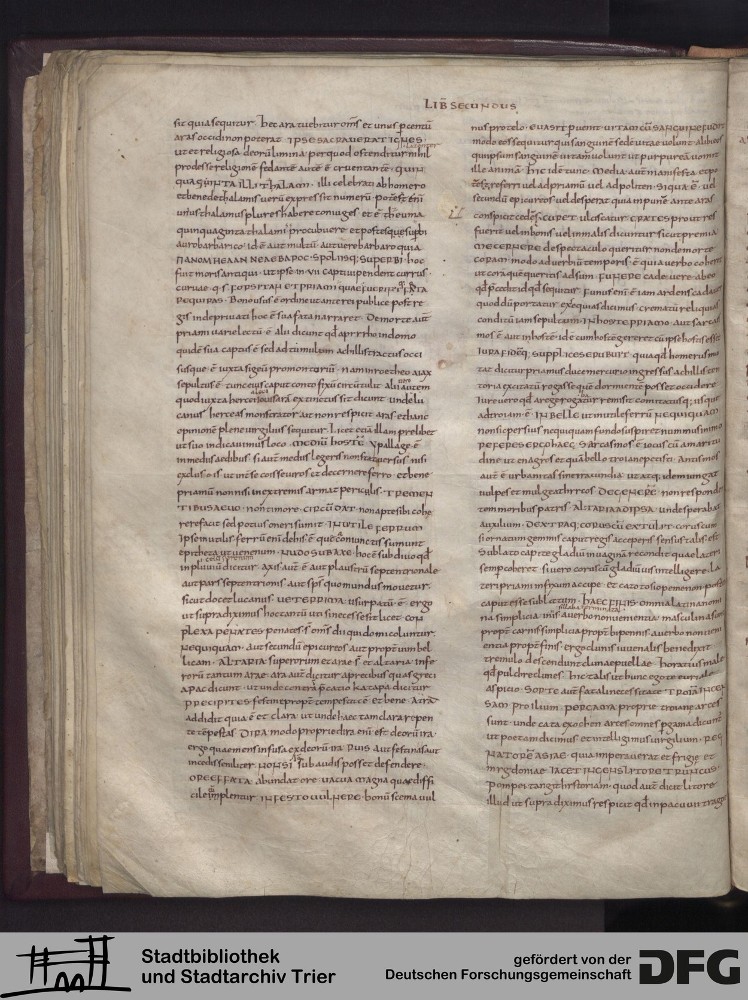 LIB SECUNDUS
sit quia sequitur. hec ara tuebitur om̄s et unius p centū
aras occidi non poterat. IPSE SACRAUERAT IGNES.
ut et religiosa deorū limina perquod ostenditur nihil
prodesse religionē
QUINQUAGINTA ILLI THALAMI. illi celebrati ab homero
et bene thalamis uerū expressit numerū potest enī
unius thalamus plures habere coniuges et ē
quinquaginta thalami procubuere et postesque supbi
auro barbarico id ē aut multū aut uere barbaro quia
SPOLIISQ; SUPERBI hoc
fuit moris antiqui ut ipse in VII captiui pendent currus
curuae q; s FORSITAN ET PRIAMI QUAE FUERINT FATA
REQUIRAS. Bonus usus ē ordine ut ante rei publice post re
gis inde priuati hoc ē sua fata narraret De morte aut
priami uarie lectū ē alii dicunt qd a pyrrho in domo
quidē sua captus ē sed ad tumulum achillis tractus occi
susque ē iuxta sigeū promontoriū. nam in roetheo aiax
sepultus ē tunc eius caput conto fixū circūtulit alii autem
quod iuxta hercei iouis arā extinctus sit dicunt unde lu
canus herceas monstrator ait non respicit aras et hanc
opinionē plene uirgilius sequitur. Licet etiā illam prelibet
ut suo indicauimus loco. MEDIŪ HOSTĒ ypallage ē
in mediis aedibus si aut medius legeris non stat uersus nisi
excluso is ut inter se coiisse uiros et decernere ferro. et bene
priamū non nisi in extremis armat periculis. TREMEN
TIBUS AEUO. non timore. CIRCŪDAT. non aptesibi cohe
rere facit sed potius oneri sumit. INUTILE FERRUM
ipsum utinis ferrū enī debis ē que coniunctis sumunt
epitheta ut uenenum. NUDO SUB AXE. hoc ē sub diuo qd
dicitur. axis aut ē aut plaustrū septentrionale
aut pars septentrionis aut ipsū quo mundus mouetur.
sicut docet lucanus. UETERRIMA. usurpatū ē ergo
ut supra diximus hoc tantū uti si necesse sit licet COM
PLEXA PENATES penates s̄ om̄s dii qui domi coluntur.
NEQUIQUAM. aut secundū epicureos aut propt̄ uim bel
licam. ALTARIA superorum et arae s̄ et altaria infe
rorū tantum arae. ara aut dicitur a precibus quas greci
APAC dicunt ut unde contrā pcatio katapa dicitur
PRECIPITES festine propt̄ tempestatē ē. bene. ATRĀ
addidit quia ē et clara ut unde haec tam clara repen
te tēpestas DIRA modo propriē dira enī est deorū ira.
ergo quae mens insusa ex deorū ira RUIS aut festinas aut
incedis seniliter. NON SI subaudis posset defendere.
OBE EFFETA. abundat ore. UACUA magna quae diffi
cile implentur INFESTO UULNERE. bonū scema uul
nus pro telo. EUASIT puenit. UITAM CŪ SANGUINE FUDIT
modo eos sequitur qui sanguinē sedē uitae uolunt. alibi eos
qui ipsum sanguinē uitam uolunt ut purpureā uomit
ille animā. Hic ide tunc. MEDIA. aut manifesta et po
test referri uel ad priamū uel ad politen. SI QUA Ē. uel
secundū epicureos uel desperat quia inpune ante aras
conspicit cedes. CURET ulciscatur GRATES prout res
fuerit uel in bonis uel in malis dicuntur sicut premia
ME CERNERE de spectaculo queritur non de morte
CORAM. modo aduerbiū temporis ē quia uerbo coheret
ut coram quē queritis adsum. FUNERE cadauere. ab eo
qd pcedit id qd sequitur. Funus enī ē iam ardens cadauer
quod dū portatur exequias dicimus crematū reliquias
conditū iam sepultum. IN HOSTE PRIAMO. aut sarcas
mos ē aut in hoste id ē cum hoste gereret cū ipse hostis esset
IURA FIDEQ; SUPPLICIS ERUBUIT. quia qd homerus no
tat dicitur priamus duce mercurio ingressus achillis ten
toria excitatū rogasse quē dormientē posset occidere
Iure uero qd a rege rogatur remisit comitatusq; usque
ad troiam ē. INBELLE ut inutile ferrū NEQUIQUAM
non si cipersius nequiquam fundos suspiret nummus in imo
REFERES ERGO HAEC. Sarcasmos ē iocus cū amaritu
dine ut en agros et quā bello troiane petisti. Antismos
aut ē urbanitas sine iracundia. ut atq; idem iungat
uulpes et mulgeat hircos. DEGENERĒ. non responden
tem moribus patris. ALTARIA AD IPSA. unde sperabat
auxilium. DEXTRAQ; CORUSCŪ EXTULIT. coruscum
si ornatum gemmis capuli regis acceperis sensus talis est.
Sublato capite gladiū in uaginā recondit quae lateri
semp coheret. si uero coruscū gladiū uis intellegere. la
teri priami infixum accipe. et caco to siopemonon. post
caput esse sublatum. HAEC FINIS. omnia latina nomi
na simplicia unis sillaba terminata. a uerbo non uenientia. masculina sunt
propt̄ carnis simplicia propt̄ bipennis. a uerbo non ueni
entia propt̄ finis. ergo clunis iuuenalis bene dixit
tremulo descendunt clune puellae. horatius male
qd pulchre clunes. Inc talis ut hunc ego te euriale
aspicio. SORTE. aut fatali necessitate. TROIĀ INCEN
SAM. pro ilium. PERGAMA. proprie troianae arces
sunt unde cata exochen arces omnes pgama dicunt
ut poetam dicimus et intelligimus uirgilium. REG
NATORĒ ASIAE. quia imperauerat et frigie et
mygdoniae. IACET INGENS LITORE TRUNCUS.
pompei tangit historiam. quod aut dicit litore.
illud ut supra diximus respicit qd in pacuuii tragoe
Stadtbibliothek
und Stadtarchiv Trier
gefördert von der
Deutschen Forschungsgemeinschaft
DFG